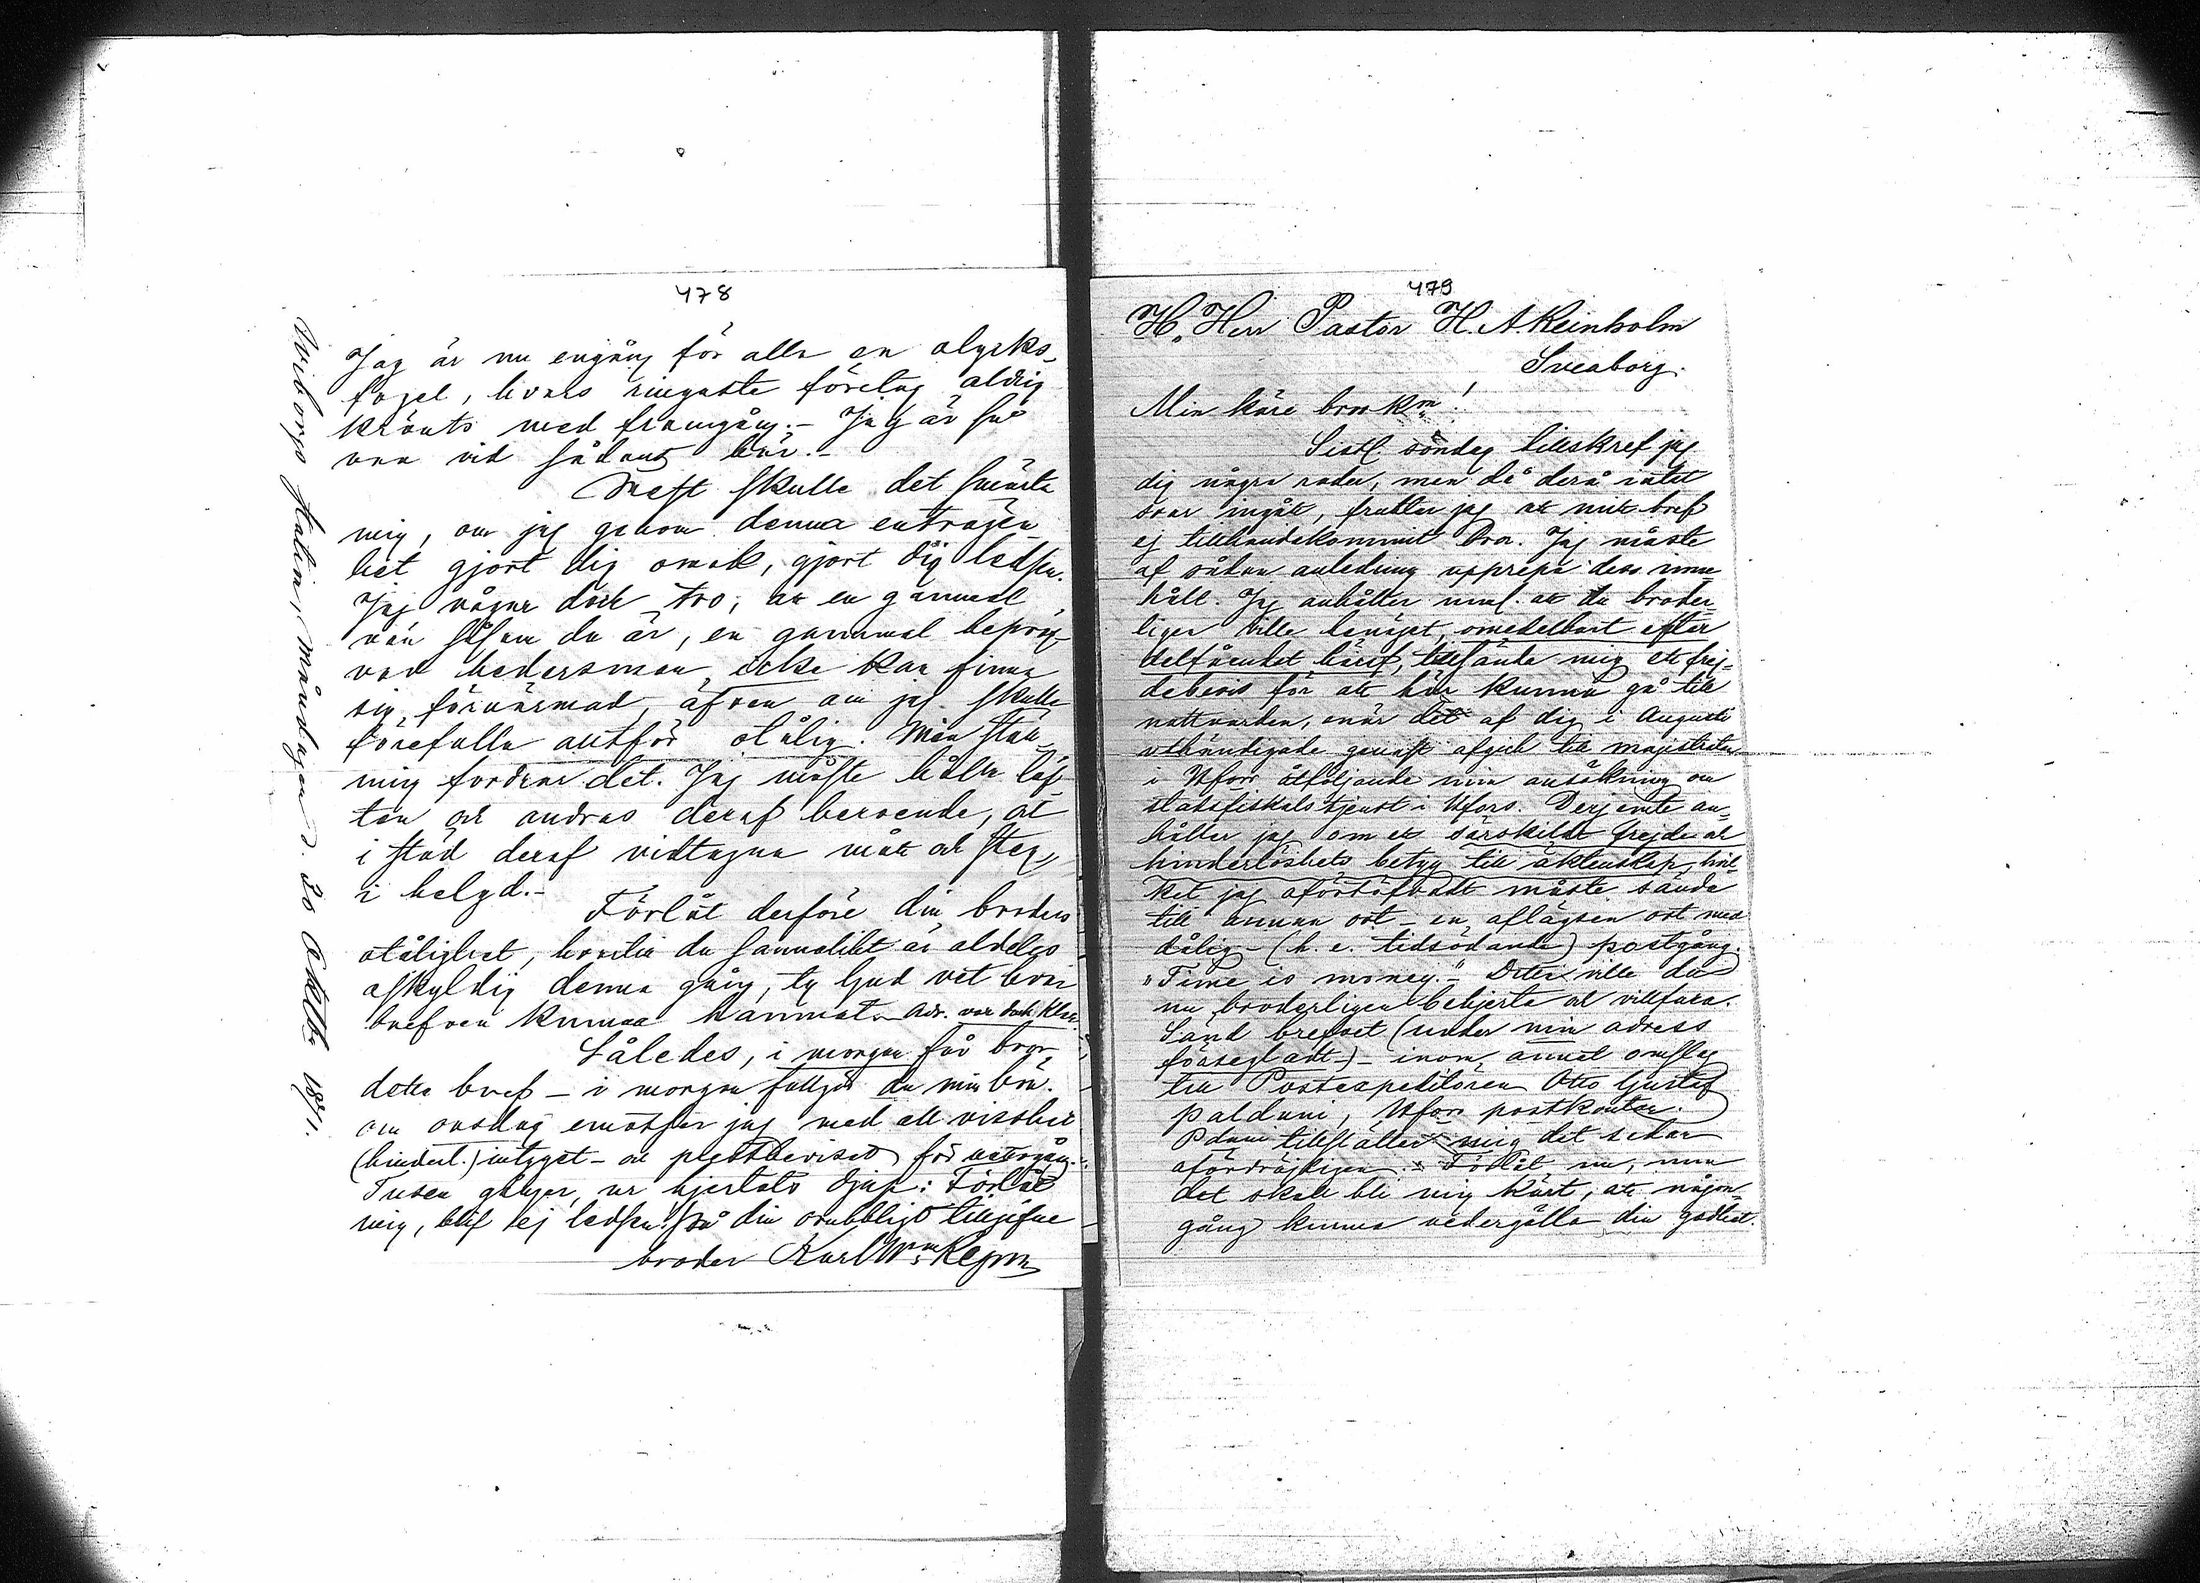 478
Jag är nu engång för alla en olycks-
fogel, hvars ringaste företag aldrig
krönts med framgång. – Jag är så
van vid sådant här. –
Mest skulle det smärta
mig, om jag genom denna enträgen
het gjort dig omak, gjort dig ledsen.
Jag vågar dock tro, att en gammal
vän såsom du är, en gammal bepröf-
vad hedersman icke kan finna
sig förnärmad, äfven om jag skulle
förefalla alltför otålig. Min ställ
ning fordrar det. Jag måste hålla löf
ten och andras deraf beroende, at
i stöd deraf vidtagna mått och steg,
i helgd. –
Förlåt derföre din broders
otålighet, hvartill du sannolikt är aldeles
oskyldig denna gång, ty Gud vet hvar
brefven kunna hamnat. Adr. var dock klar.
Således, i morgon får bror
detta bref – i morgon fullgör du min bön.
om onsdag emotser jag med all visshet
(hinderl.) intyget – och prestbeviset för nattvgång.
Tusen gånger, ur hjertats djup: Förlåt
mig, blif ej ledsen på din orubbligt tillgifne
broder Karl Wm
Wiborgs station, måndagen d. 20 1871.
479
H. Herr Pastor H. A. Reinholm
Sveaborg.
Min käre bror!
Sistl. söndag tillskref jag
dig några rader, men då derå intet
svar ingått, fruktar jag att mitt bref
ej tillhandakommit bror. Jag måste
af sådan anledning upprepa dess inne
håll. Jag anhåller neml. att du broder-
ligen ville benäget, omedelbart efter
delfåendet häraf, tillsända mig ett frej-
debevis för att här kunna gå till
nattvarden, enär det af dig i Augusti
uthändigade genast afgick till magistraten
i Hfors åtföljande min ansökning om
stadsfiskalstjenst i Hfors. Derjemte an-
håller jag om ett särskildt frejde och
hinderlöshets betyg till äktenskap, hvil-
ket jag oförtöfvadt måste sända
till annan ort – en aflägsen ort med
dålig – (h. e. tidsödande) postgång.
"Time is money." Detta ville du
nu broderligen behjerta och villfara.
Sänd brefvet (under min adress
försegladt) – inom annat omslag
till Postexpeditören Otto Gustaf
Paldani, Hfors postkontor.
Pdani tillställer mig det sedan
ofördröjligen. – Förlåt nu, men
det skall bli mig kärt, att någon-
gång kunna vedergälla din godhet.